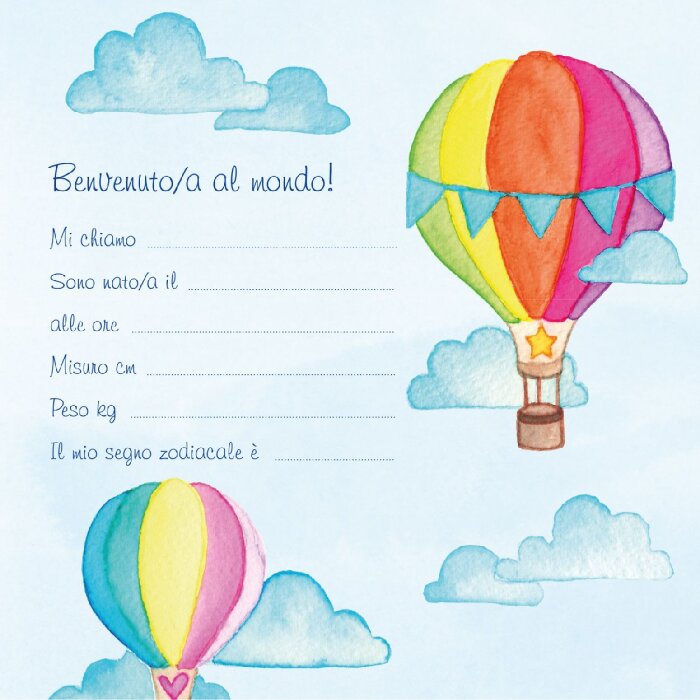 Benvenuto/a al mondo!
Mi chiamo
Sono nato/a il
alle ore
Misuro cm
Peso kg
Il mio segno zodiacale è